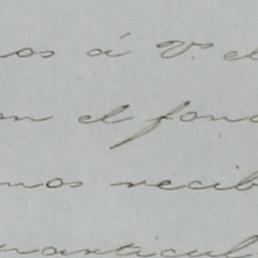 os á V. el
on el fond
mos recib
particul